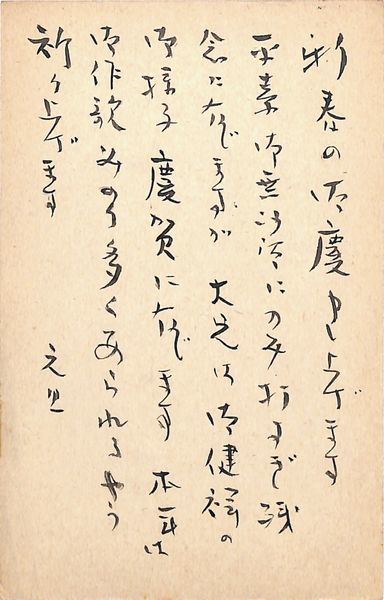 新春の御慶申し上げます
平素御無沙汰にのみ打すぎ残
念に存じますが 大兄は御健祥の
御様子慶賀に存じます 本年は
御作歌みのり多くあられるやう
祈り上げます 元旦